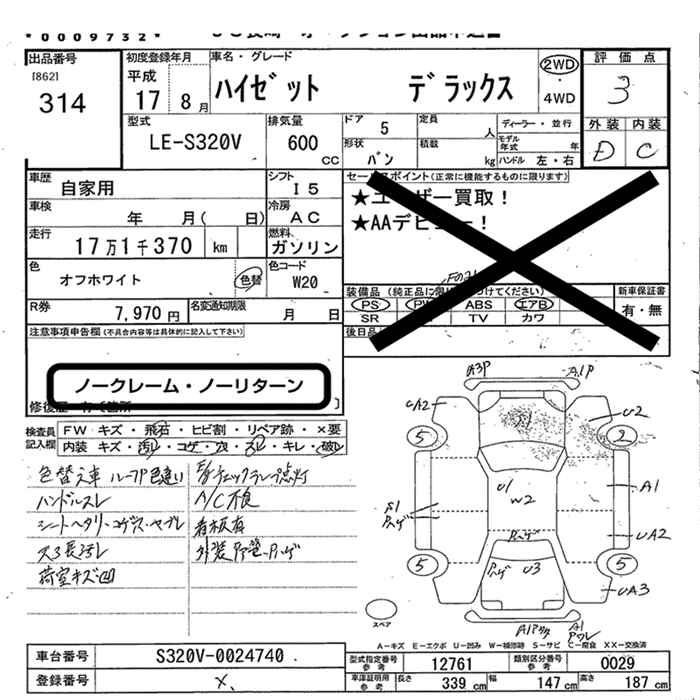 *0009732*
出品番号
[862]
314
初度登録年月
平成
17 8月
車名・グレード
ハイゼット デラックス
2WD
・
4WD
評価点
3
外装 内装
D C
型式
LE-S320V
排気量
600
CC
ドア
5
定員
人
形状
バン
積載
kg
ディーラー・並行
モデル年式
年
ハンドル 左・右
車歴
自家用
シフト
I5
車検
年 月( 日)
冷房
AC
走行
17万1千370 km
燃料
ガソリン
色
オフホワイト
色替
色コード
W20
R券
7,970円
名変通知期限
月 日
セールスポイント(正常に機能するものに限ります)
★ユーザー買取!
★AAデビュー!
装備品
PS PW ABS エアB
SR TV カワ
新車保証書
有・無
後日品
注意事項申告欄(不具合内容等は具体的に記入して下さい)
ノークレーム・ノーリターン
検査員
記入欄
FW キズ・飛石・ヒビ割・リペア跡・×要
内装 キズ・汚レ・コゲ・穴・スレ・キレ・破レ
色替え車 ルーフ色違い
ハンドルスレ
シートヘタリ・コゲス・ヤブレ
スス長汚レ
荷室キズ凹
E/gチェックランプ点灯
A/C不良
看板有
A3P A1P
UA2 U2
5 2
A1
U1
W2
UA2
5 5
U3
UA3
スペア
A1
A-キズ E-エクボ U-凹み W-補修跡 S-サビ C-腐食 XX-交換済
車台番号
S320V-0024740
登録番号
×
型式指定番号
参考
12761
類別区分番号
参考
0029
車庫証明用
参考
長さ
339 cm
幅
147 cm
高さ
187 cm